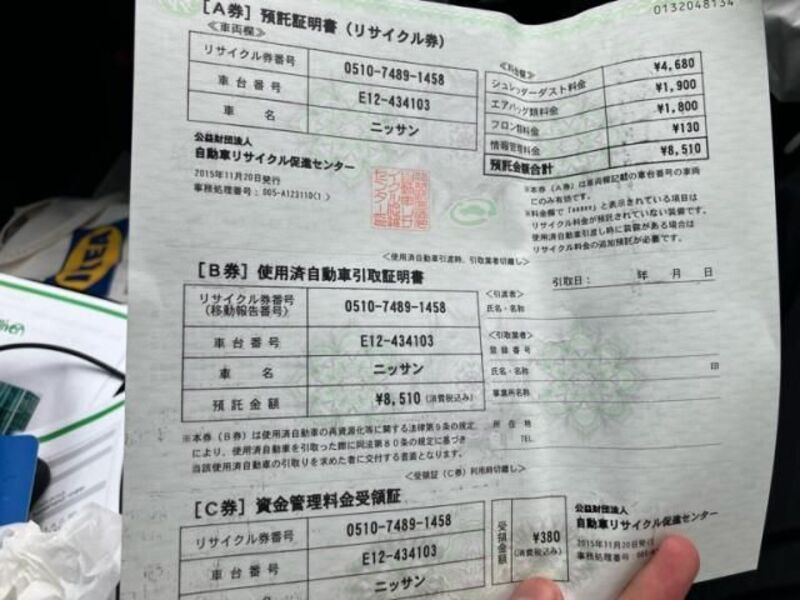 0132048134
[A券] 預託証明書（リサイクル券）
≪車両欄≫
リサイクル券番号 0510-7489-1458
車台番号 E12-434103
車名 ニッサン
≪料金欄≫
シュレッダーダスト料金 ¥4,680
エアバッグ類料金 ¥1,900
フロン類料金 ¥1,800
情報管理料金 ¥130
預託金額合計 ¥8,510
公益財団法人
自動車リサイクル促進センター
2015年11月20日発行
事務処理番号：005-A123110(1 )
※本券（A券）は車両欄記載の車台番号の車両
にのみ有効です。
※料金欄で「*****」と表示されている項目は
リサイクル料金が預託されていない装備です。
使用済自動車引渡し時に装備がある場合は
リサイクル料金の追加預託が必要です。
<使用済自動車引渡時、引取業者切離し>
[B券] 使用済自動車引取証明書
引取日： 年 月 日
リサイクル券番号
(移動報告番号) 0510-7489-1458
車台番号 E12-434103
車名 ニッサン
預託金額 ¥8,510 (消費税込み)
<引渡者>
氏名・名称
<引取業者>
登録番号
氏名・名称 印
事業所名称
所在地
TEL.
※本券（B券）は使用済自動車の再資源化等に関する法律第9条の規定
により、使用済自動車を引取った際に同法第80条の規定に基づき
当該使用済自動車の引取りを求めた者に交付する書面となります。
<受領証（C券）利用時切離し>
[C券] 資金管理料金受領証
リサイクル券番号 0510-7489-1458
車台番号 E12-434103
車名 ニッサン
受領金額 ¥380
(消費税込み)
公益財団法人
自動車リサイクル促進センター
2015年11月20日発行
事務処理番号：